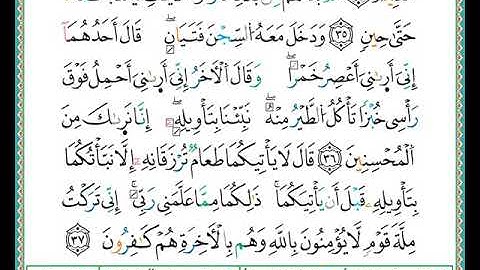 حَتَّىٰ حِينٍ ﴿٣٥﴾ وَدَخَلَ مَعَهُ السِّجْنَ فَتَيَانِ ۖ قَالَ أَحَدُهُمَا
إِنِّي أَرَىٰنِي أَعْصِرُ خَمْرًا ۖ وَقَالَ الْآخَرُ إِنِّي أَرَىٰنِي أَحْمِلُ فَوْقَ
رَأْسِي خُبْزًا تَأْكُلُ الطَّيْرُ مِنْهُ ۖ نَبِّئْنَا بِتَأْوِيلِهِ ۖ إِنَّا نَرَىٰكَ مِنَ
الْمُحْسِنِينَ ﴿٣٦﴾ قَالَ لَا يَأْتِيكُمَا طَعَامٌ تُرْزَقَانِهِ إِلَّا نَبَّأْتُكُمَا
بِتَأْوِيلِهِ قَبْلَ أَن يَأْتِيَكُمَا ۚ ذَٰلِكُمَا مِمَّا عَلَّمَنِي رَبِّي ۚ إِنِّي تَرَكْتُ
مِلَّةَ قَوْمٍ لَّا يُؤْمِنُونَ بِاللَّهِ وَهُم بِالْآخِرَةِ هُمْ كَٰفِرُونَ ﴿٣٧﴾